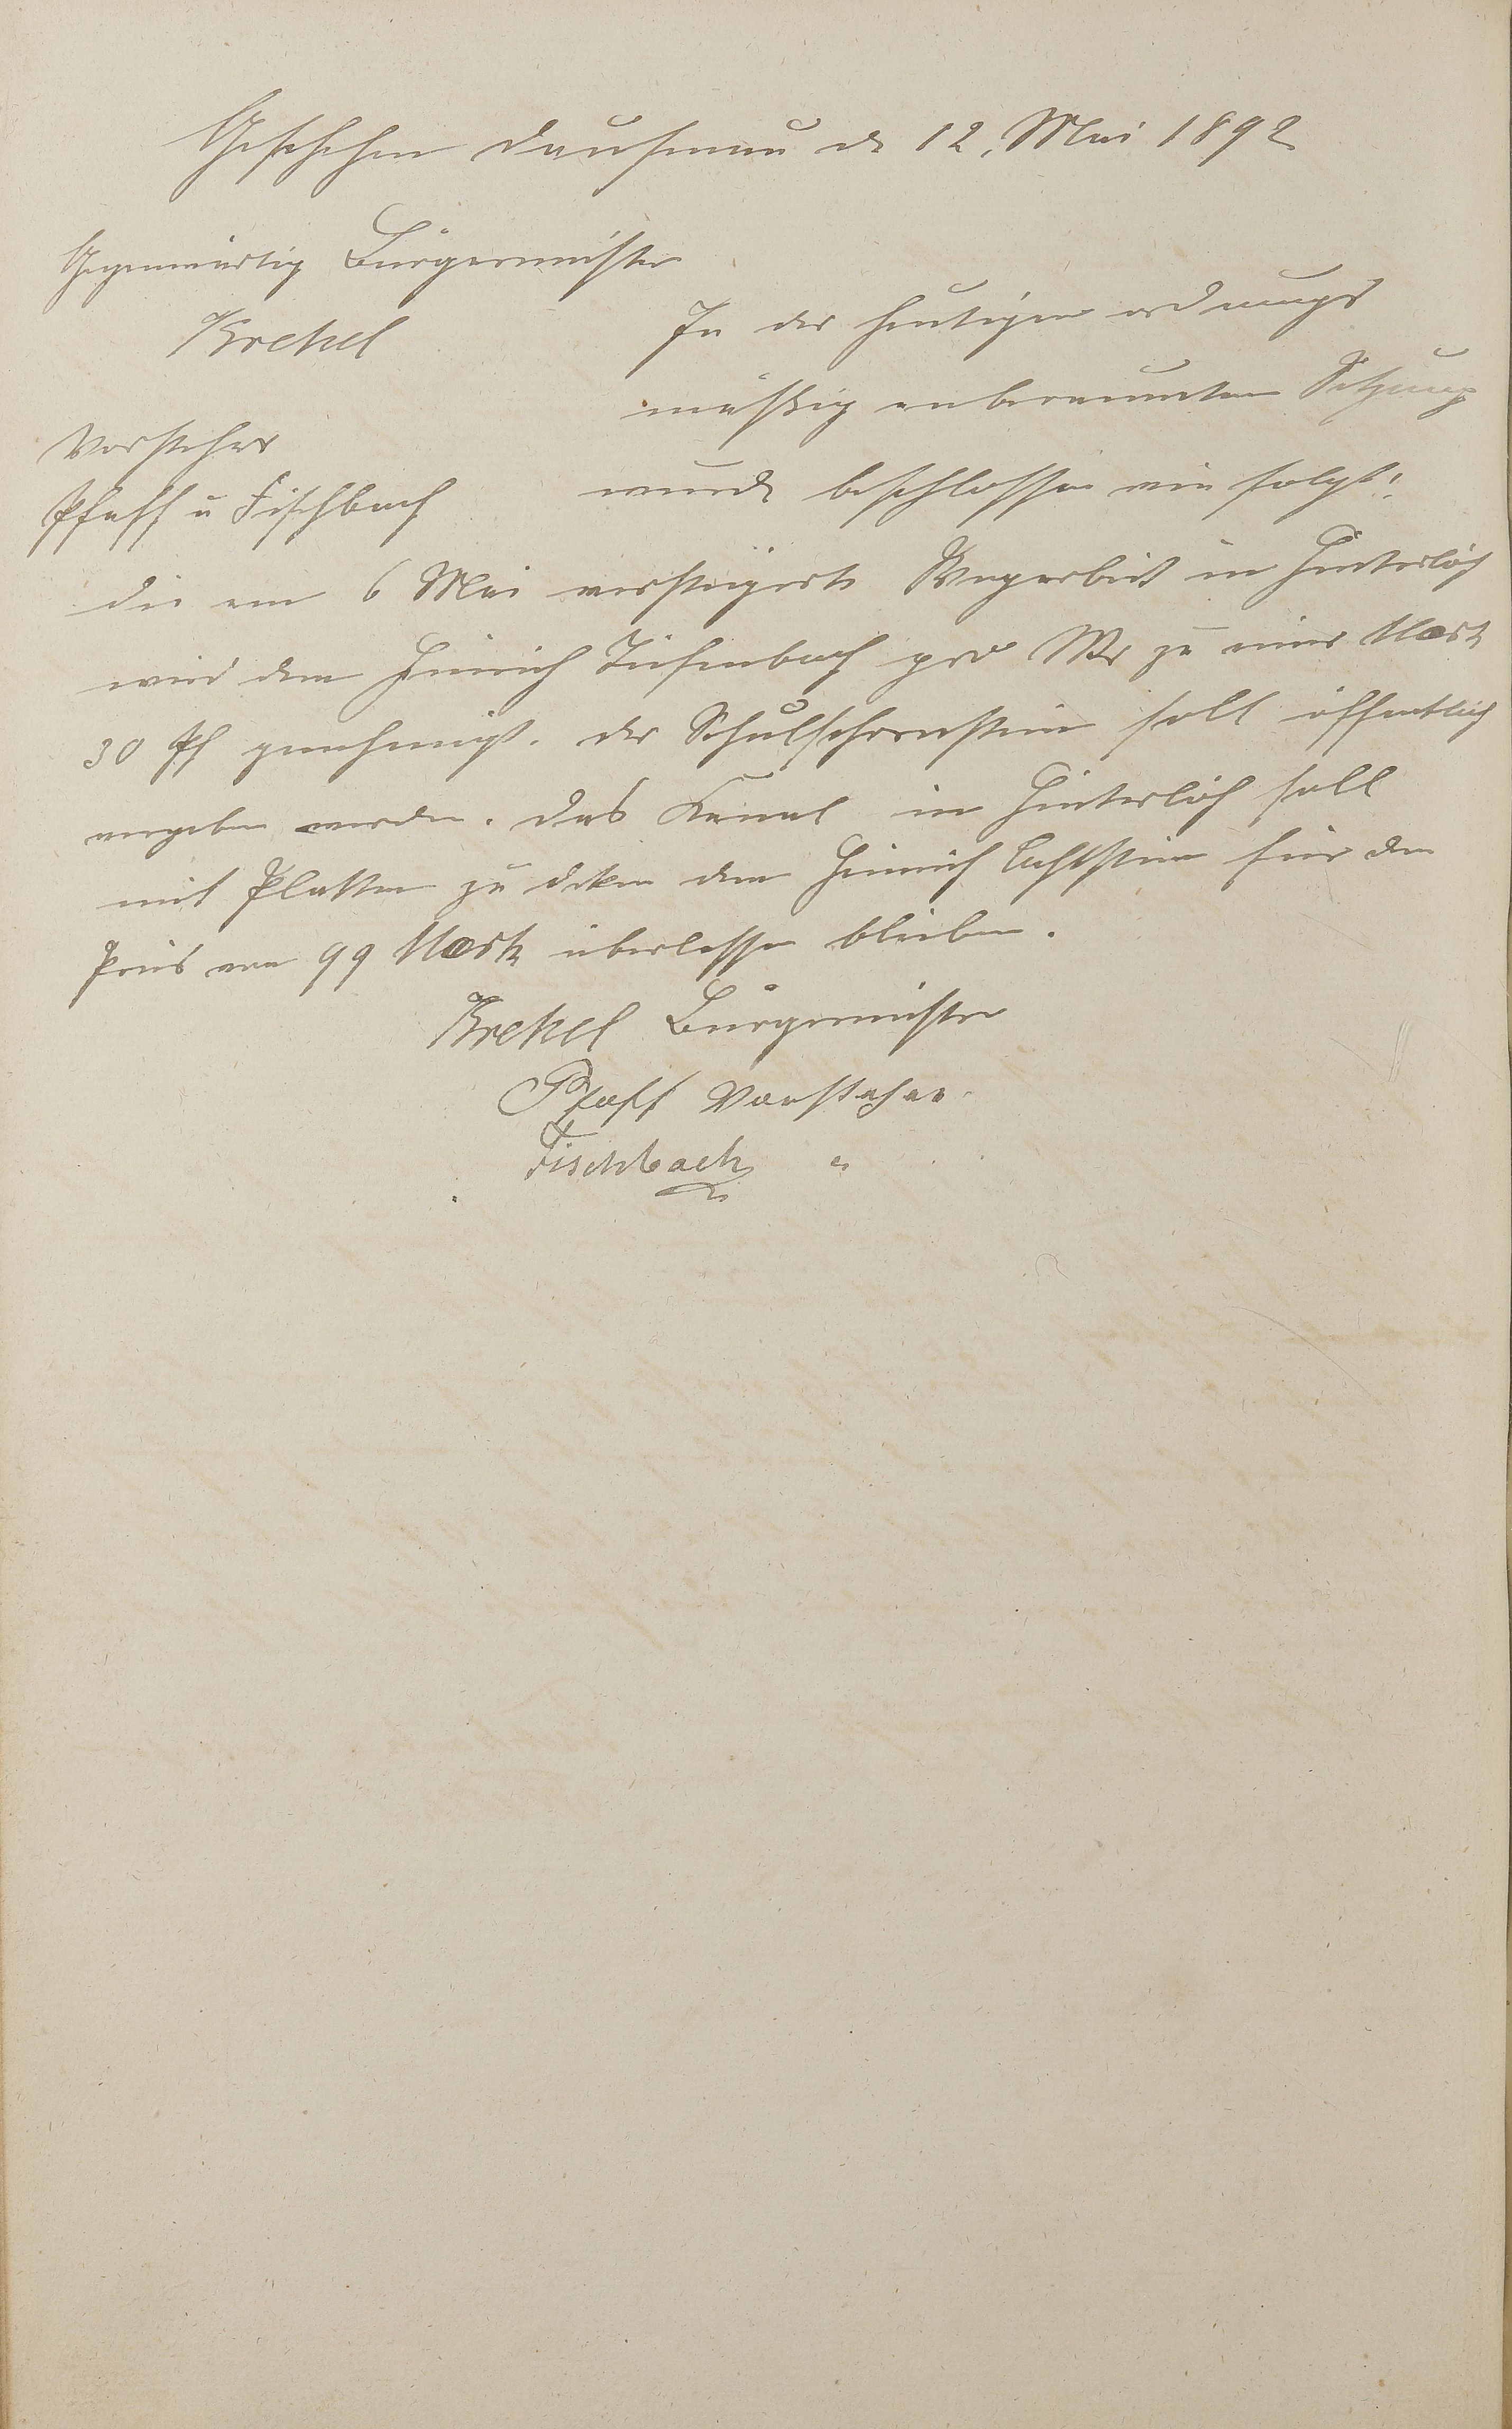 Geschehen Dausenau d 12. Mai 1892
Gegenwärtig Bürgermeister
Krekel
Vorsteher
Pfaff u Fischbach
In der heutigen ordnungs
mäßig anberaumten Sitzung
wurde beschlossen wie folgt:
die am 6 Mai versteigerte Wegarbeit in Hinterlöh
wird dem Heinrich Tiefenbach pro Mtr zu einer Mark
30 Pf genehmigt. der Schulschornstein soll öffentlich
vergeben werden. das Kanal in Hinterlöh soll
mit Platten zu deken dem Heinrich für den
Preis von 99 Mark überlassen bleiben.
Krekel Bürgermeister
Pfaff Vorsteher
Fischbach "